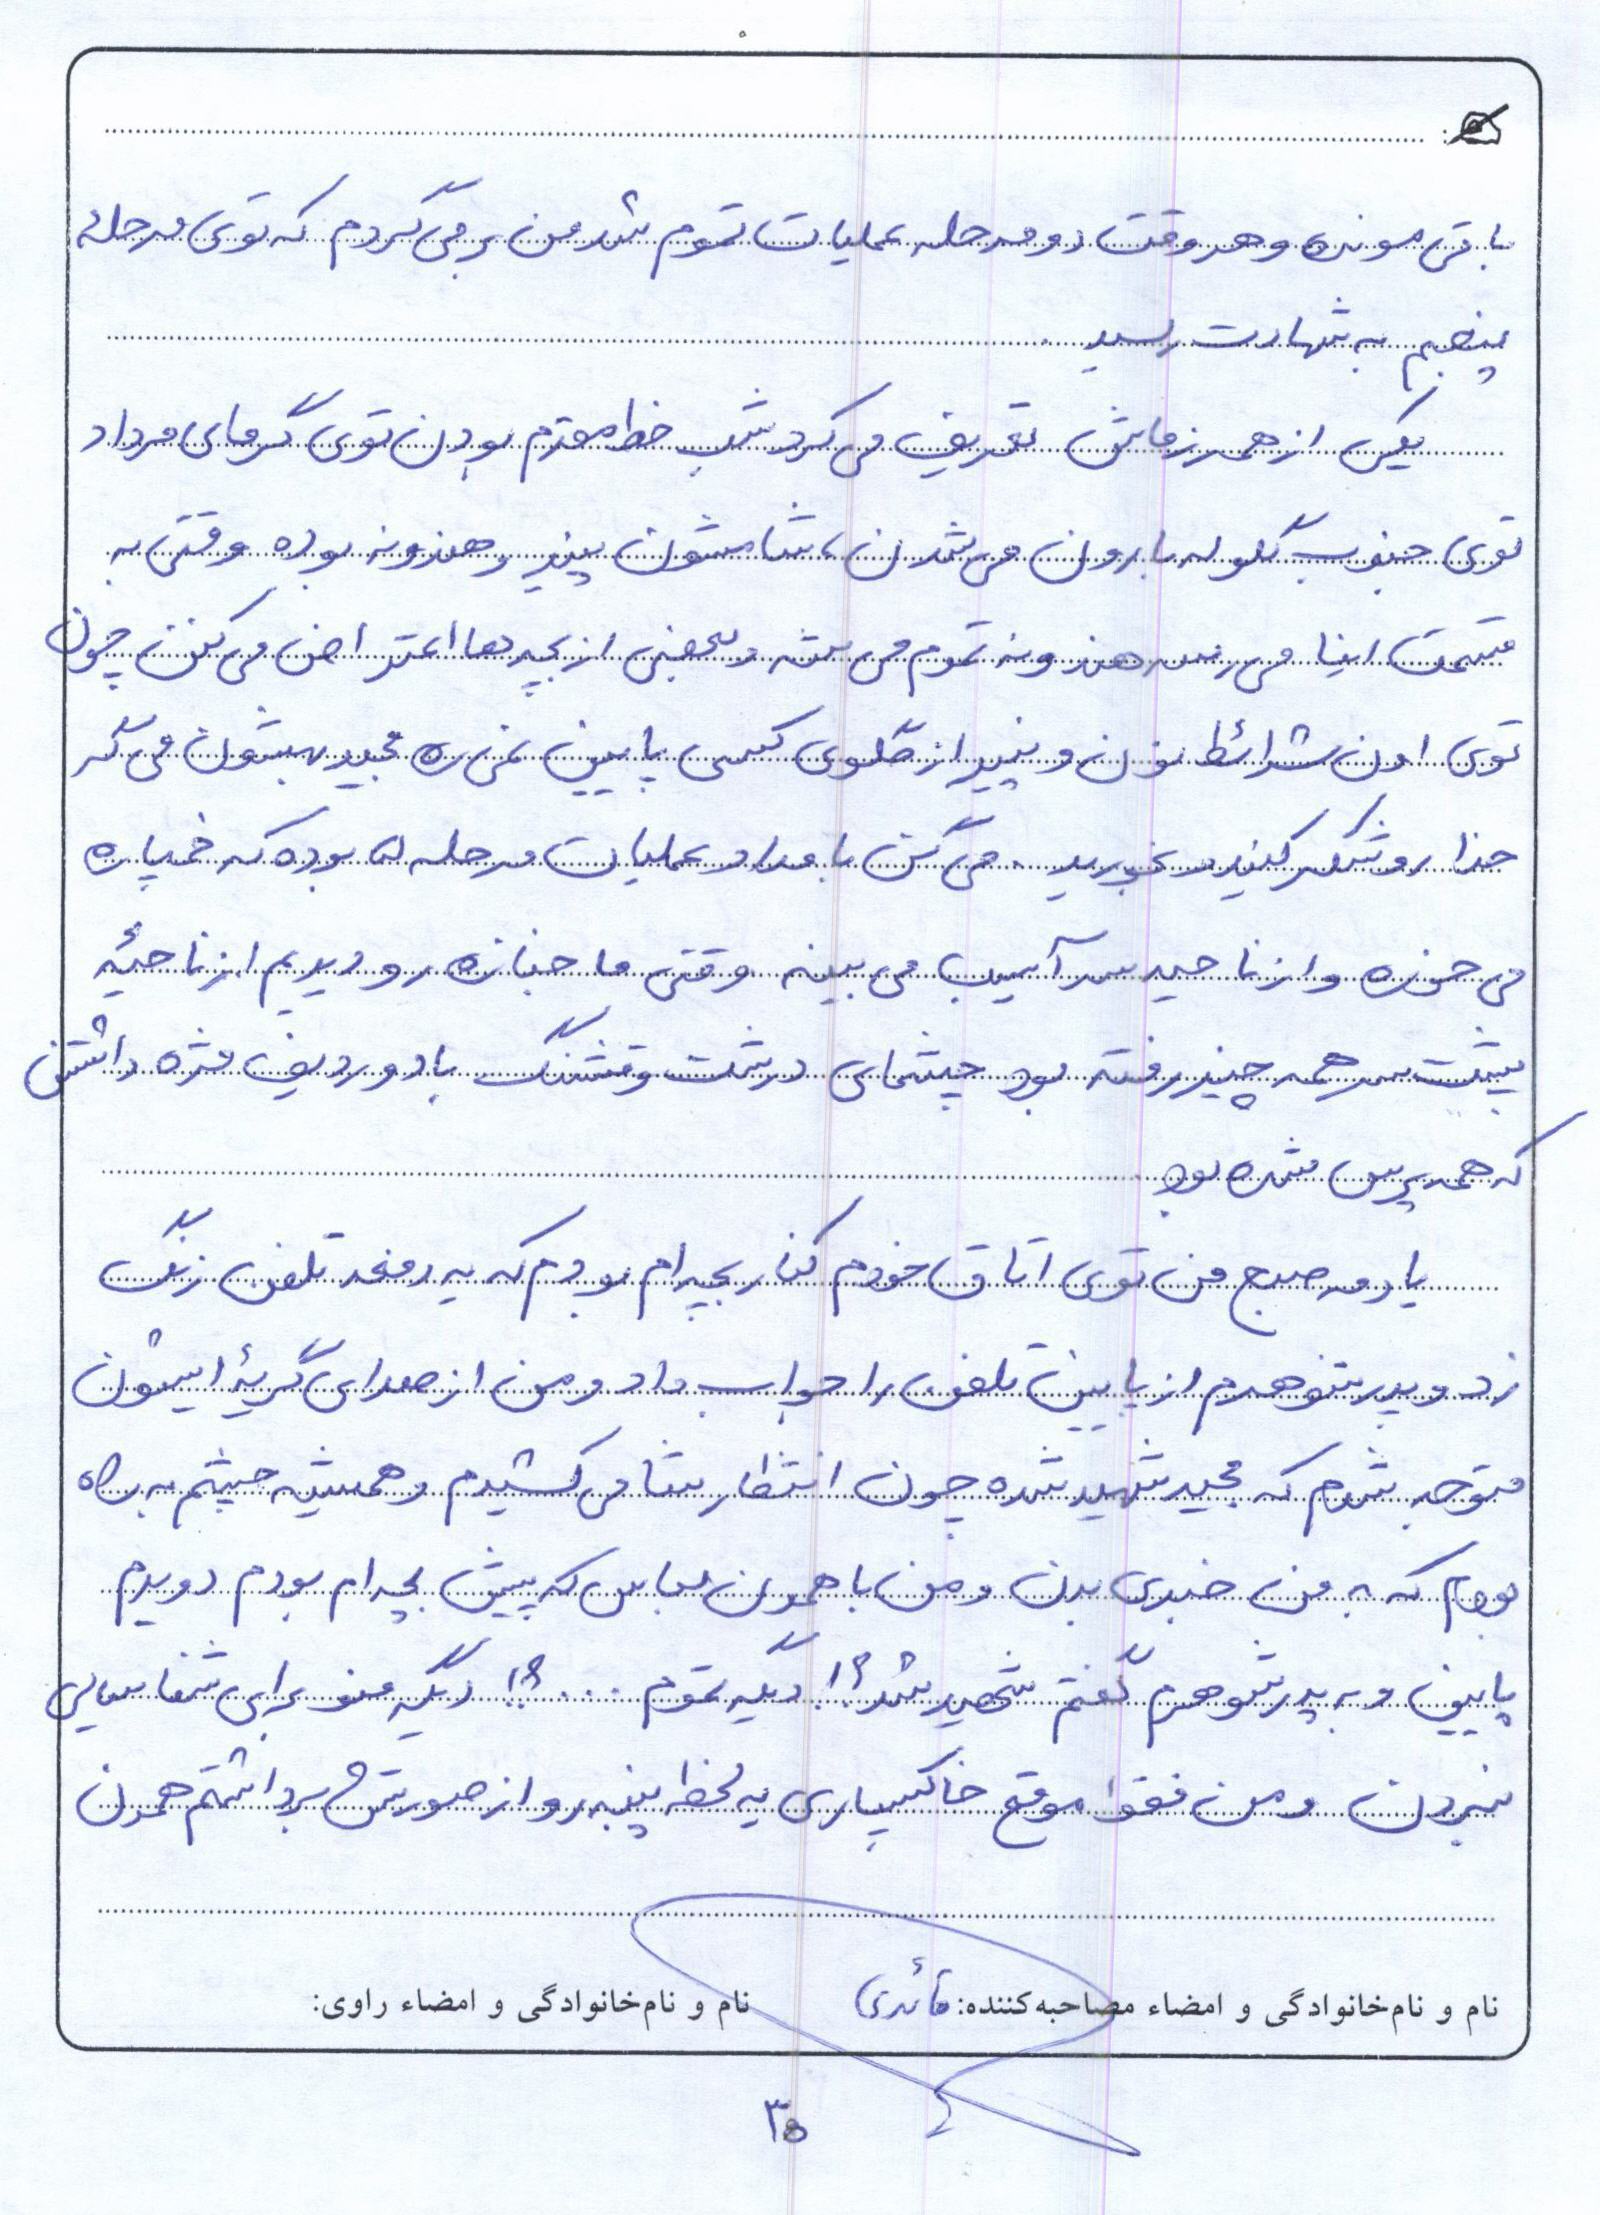 باقی مونده و هر وقت دو مرحله عملیات تموم شد من برمی‌گردم که توی مرحلهٔ
پنجم به شهادت رسید.
یکی از همرزماش تعریف می‌کرد شب خط مقدم بودن توی گرمای مرداد
توی جنوب گلوله بارون می‌شدن، شامشون پنیر و هندونه بوده وقتی به
قسمت اینا می‌رسه هندونه تموم می‌شه و بعضی از بچه‌ها اعتراض می‌کنن چون
توی اون شرائط نون و پنیر از گلوی کسی پایین نمی‌ره مجید بهشون می‌گه
خدا رو شکر کنید و بخورید. می‌گن بامداد عملیات مرحله ۵ بوده که خمپاره
می‌خوره و از ناحیه سر آسیب می‌بینه وقتی ما جنازه رو دیدیم از ناحیهٔ
پشت سر همه چیز رفته بود چشمای درشت و قشنگ با دو ردیف مژه داشتن
که همه پرس شده بود
یادمه صبح من توی اتاق خودم کنار بچه‌ام بودم که یه دفعه تلفن زنگ
زد و پدر شوهرم از پایین تلفن را جواب داد و من از صدای گریهٔ ایشون
متوجه شدم که مجید شهید شده چون انتظارشا می‌کشیدم و همیشه چشم به راه
بودم که به من خبری بدن و من با همون لباس که پیش بچه‌ام بودم دویدم
پایین و به پدر شوهرم گفتم شهید شد؟! دیگه تموم ....؟! دیگه منو برای شناسایی
نبردن و من فقط موقع خاکسپاری یه لحظه پنبه رو از صورتش برداشتم همون
نام و نام‌خانوادگی و امضاء مصاحبه‌کننده: قائدی
نام و نام‌خانوادگی و امضاء راوی:
۳۵